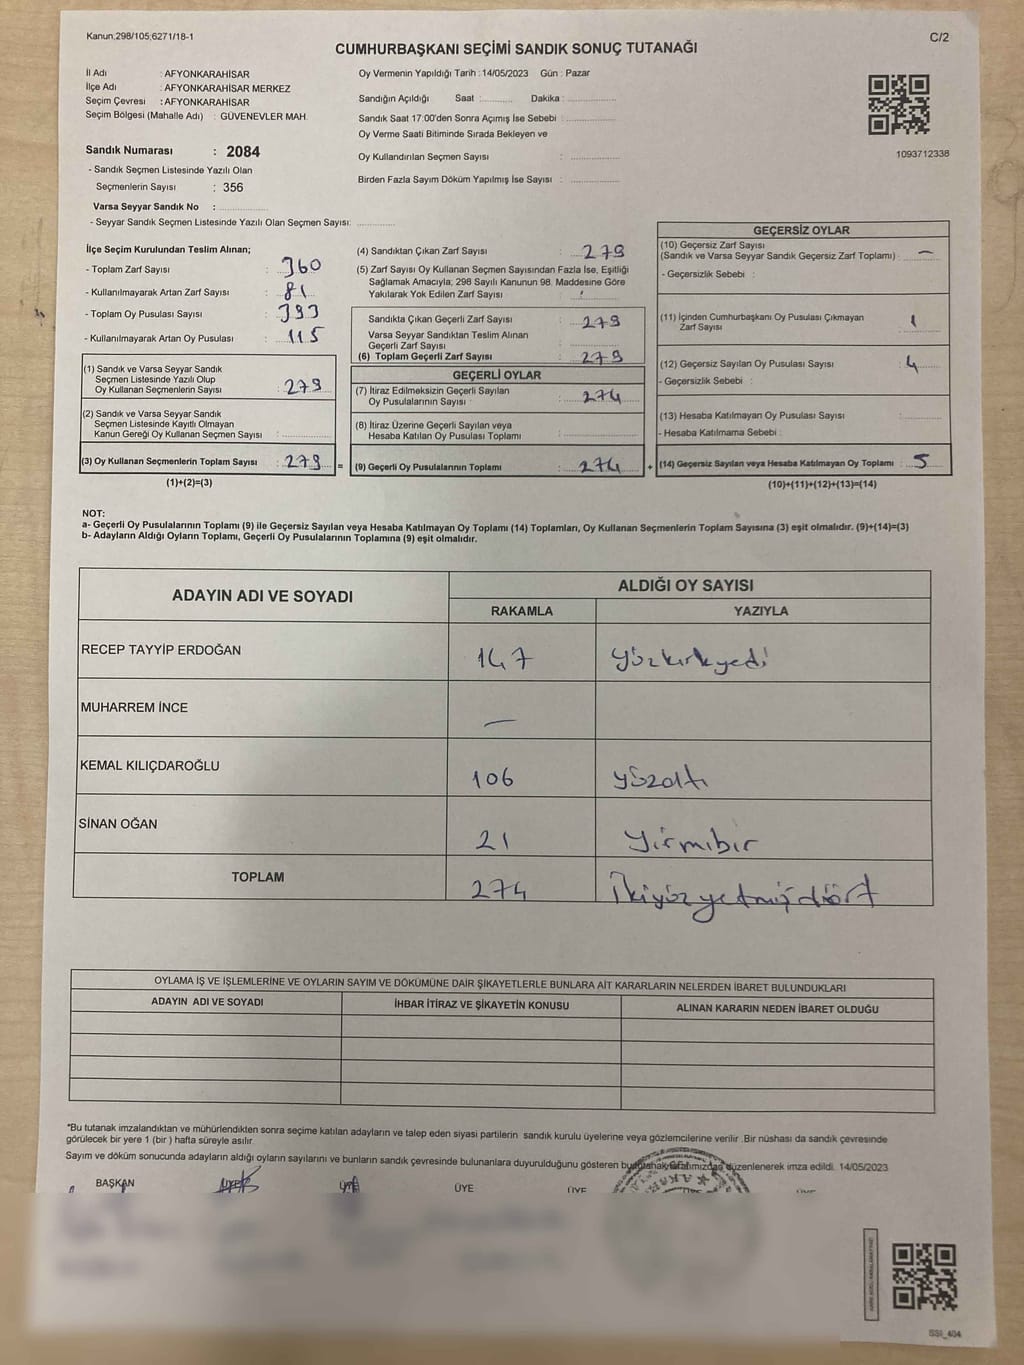 Kanun;298/105;6271/18-1
C/2
CUMHURBAŞKANI SEÇİMİ SANDIK SONUÇ TUTANAĞI
İl Adı : AFYONKARAHİSAR
İlçe Adı : AFYONKARAHİSAR MERKEZ
Seçim Çevresi : AFYONKARAHİSAR
Seçim Bölgesi (Mahalle Adı) : GÜVENEVLER MAH.
Oy Vermenin Yapıldığı Tarih : 14/05/2023 Gün : Pazar
Sandığın Açıldığı Saat : Dakika :
Sandık Saat 17:00'den Sonra Açımış İse Sebebi :
Oy Verme Saati Bitiminde Sırada Bekleyen ve
Oy Kullandırılan Seçmen Sayısı :
Birden Fazla Sayım Döküm Yapılmış İse Sayısı :
1093712338
Sandık Numarası : 2084
- Sandık Seçmen Listesinde Yazılı Olan
Seçmenlerin Sayısı : 356
Varsa Seyyar Sandık No :
- Seyyar Sandık Seçmen Listesinde Yazılı Olan Seçmen Sayısı:
İlçe Seçim Kurulundan Teslim Alınan;
- Toplam Zarf Sayısı : 360
- Kullanılmayarak Artan Zarf Sayısı : 81
- Toplam Oy Pusulası Sayısı : 393
- Kullanılmayarak Artan Oy Pusulası : 115
(1) Sandık ve Varsa Seyyar Sandık
Seçmen Listesinde Yazılı Olup
Oy Kullanan Seçmenlerin Sayısı : 279
(2) Sandık ve Varsa Seyyar Sandık
Seçmen Listesinde Kayıtlı Olmayan
Kanun Gereği Oy Kullanan Seçmen Sayısı :
(3) Oy Kullanan Seçmenlerin Toplam Sayısı : 279 =
(1)+(2)=(3)
(4) Sandıktan Çıkan Zarf Sayısı : 279
(5) Zarf Sayısı Oy Kullanan Seçmen Sayısından Fazla İse, Eşitliği
Sağlamak Amacıyla, 298 Sayılı Kanunun 98. Maddesine Göre
Yakılarak Yok Edilen Zarf Sayısı :
Sandıkta Çıkan Geçerli Zarf Sayısı : 279
Varsa Seyyar Sandıktan Teslim Alınan
Geçerli Zarf Sayısı :
(6) Toplam Geçerli Zarf Sayısı : 279
GEÇERLİ OYLAR
(7) İtiraz Edilmeksizin Geçerli Sayılan
Oy Pusulalarının Sayısı : 274
(8) İtiraz Üzerine Geçerli Sayılan veya
Hesaba Katılan Oy Pusulası Toplamı :
(9) Geçerli Oy Pusulalarının Toplamı : 274 +
GEÇERSİZ OYLAR
(10) Geçersiz Zarf Sayısı
(Sandık ve Varsa Seyyar Sandık Geçersiz Zarf Toplamı) : —
- Geçersizlik Sebebi :
(11) İçinden Cumhurbaşkanı Oy Pusulası Çıkmayan
Zarf Sayısı : 1
(12) Geçersiz Sayılan Oy Pusulası Sayısı : 4
- Geçersizlik Sebebi :
(13) Hesaba Katılmayan Oy Pusulası Sayısı :
- Hesaba Katılmama Sebebi :
(14) Geçersiz Sayılan veya Hesaba Katılmayan Oy Toplamı : 5
(10)+(11)+(12)+(13)=(14)
NOT:
a- Geçerli Oy Pusulalarının Toplamı (9) ile Geçersiz Sayılan veya Hesaba Katılmayan Oy Toplamı (14) Toplamları, Oy Kullanan Seçmenlerin Toplam Sayısına (3) eşit olmalıdır. (9)+(14)=(3)
b- Adayların Aldığı Oyların Toplamı, Geçerli Oy Pusulalarının Toplamına (9) eşit olmalıdır.
ADAYIN ADI VE SOYADI
ALDIĞI OY SAYISI
RAKAMLA YAZIYLA
RECEP TAYYİP ERDOĞAN 147 Yüzkırkyedi
MUHARREM İNCE —
KEMAL KILIÇDAROĞLU 106 yüzaltı
SİNAN OĞAN 21 Yirmibir
TOPLAM 274 İkiyüzyetmişdört
OYLAMA İŞ VE İŞLEMLERİNE VE OYLARIN SAYIM VE DÖKÜMÜNE DAİR ŞİKAYETLERLE BUNLARA AİT KARARLARIN NELERDEN İBARET BULUNDUKLARI
ADAYIN ADI VE SOYADI
İHBAR İTİRAZ VE ŞİKAYETİN KONUSU
ALINAN KARARIN NEDEN İBARET OLDUĞU
*Bu tutanak imzalandıktan ve mühürlendikten sonra seçime katılan adayların ve talep eden siyasi partilerin sandık kurulu üyelerine veya gözlemcilerine verilir .Bir nüshası da sandık çevresinde
görülecek bir yere 1 (bir ) hafta süreyle asılır.
Sayım ve döküm sonucunda adayların aldığı oyların sayılarını ve bunların sandık çevresinde bulunanlara duyurulduğunu gösteren bu tutanak tarafımızdan düzenlenerek imza edildi. 14/05/2023
BAŞKAN ÜYE ÜYE
SSI_404